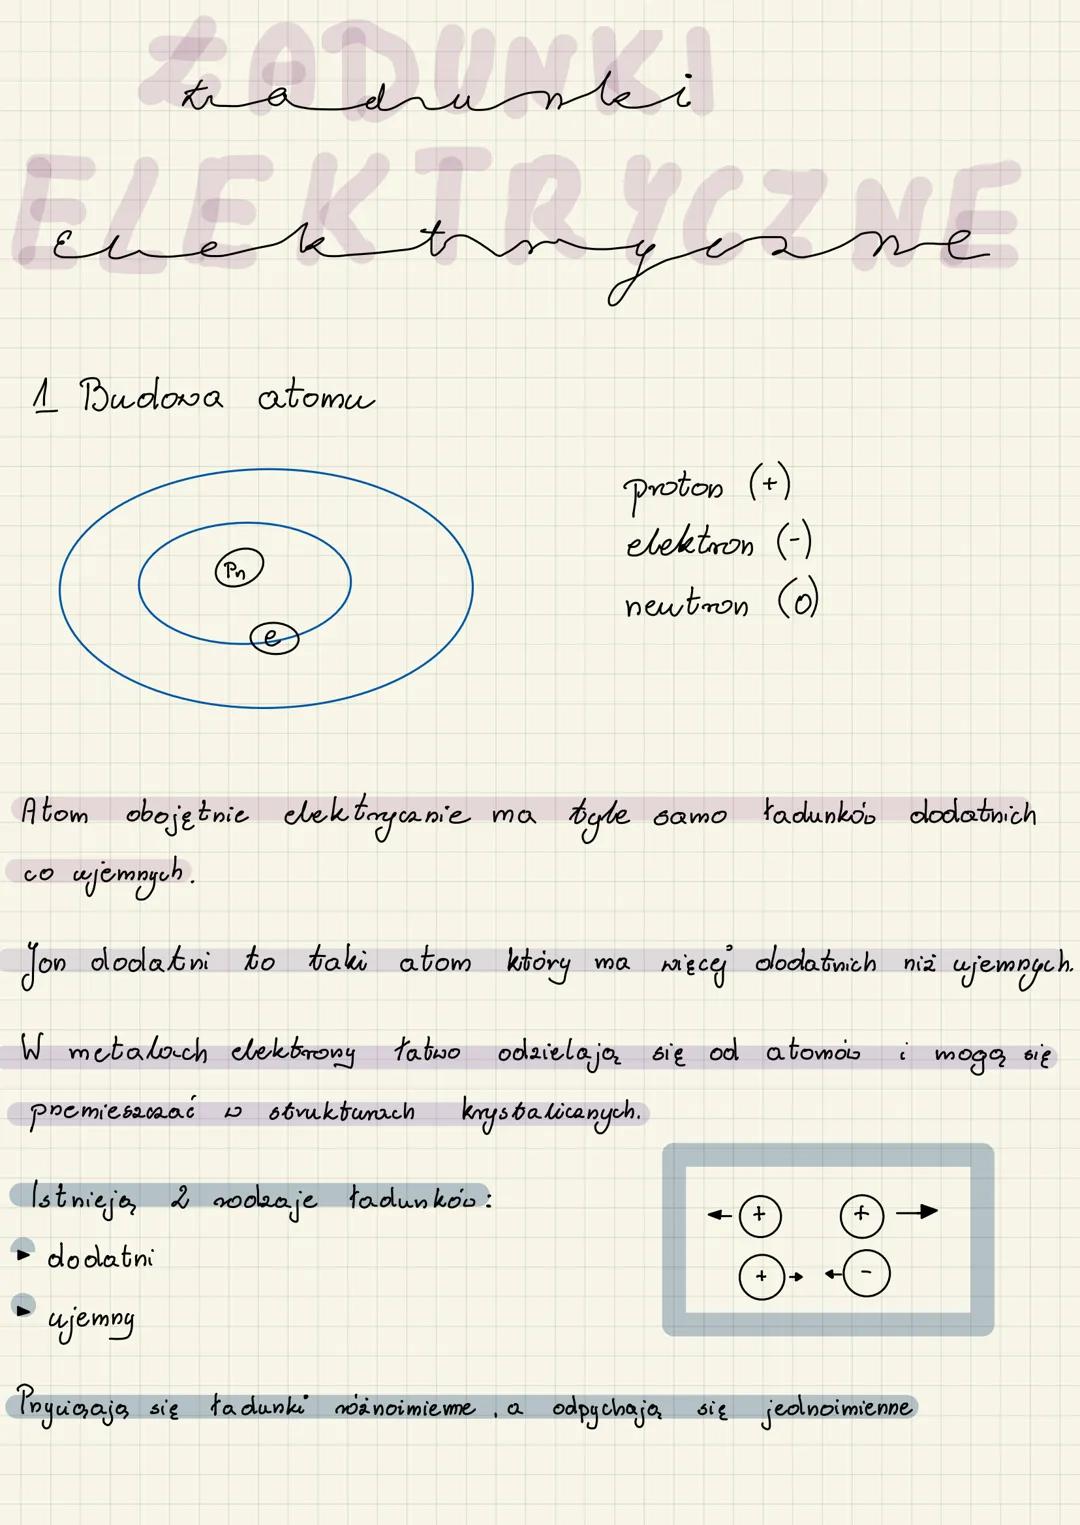 ŁADUNKI
Ładunki
ELEKTRYCZNE
Elektryczne
1 Budowa atomu
proton (+)
elektron (-)
neutron (0)
Pn
e
Atom obojętnie elektrycznie ma tyle samo ładunków dodatnich
co ujemnych.
Jon dodatni to taki atom który ma więcej dodatnich niż ujemnych.
W metalach elektrony łatwo odzielają się od atomów i mogą się
przemieszczać w strukturach krystalicznych.
Istnieją 2 rodzaje ładunków:
dodatni
ujemny
← + + →
+ → ← -
Przyciągają się ładunki różnoimienne, a odpychają się jednoimienne